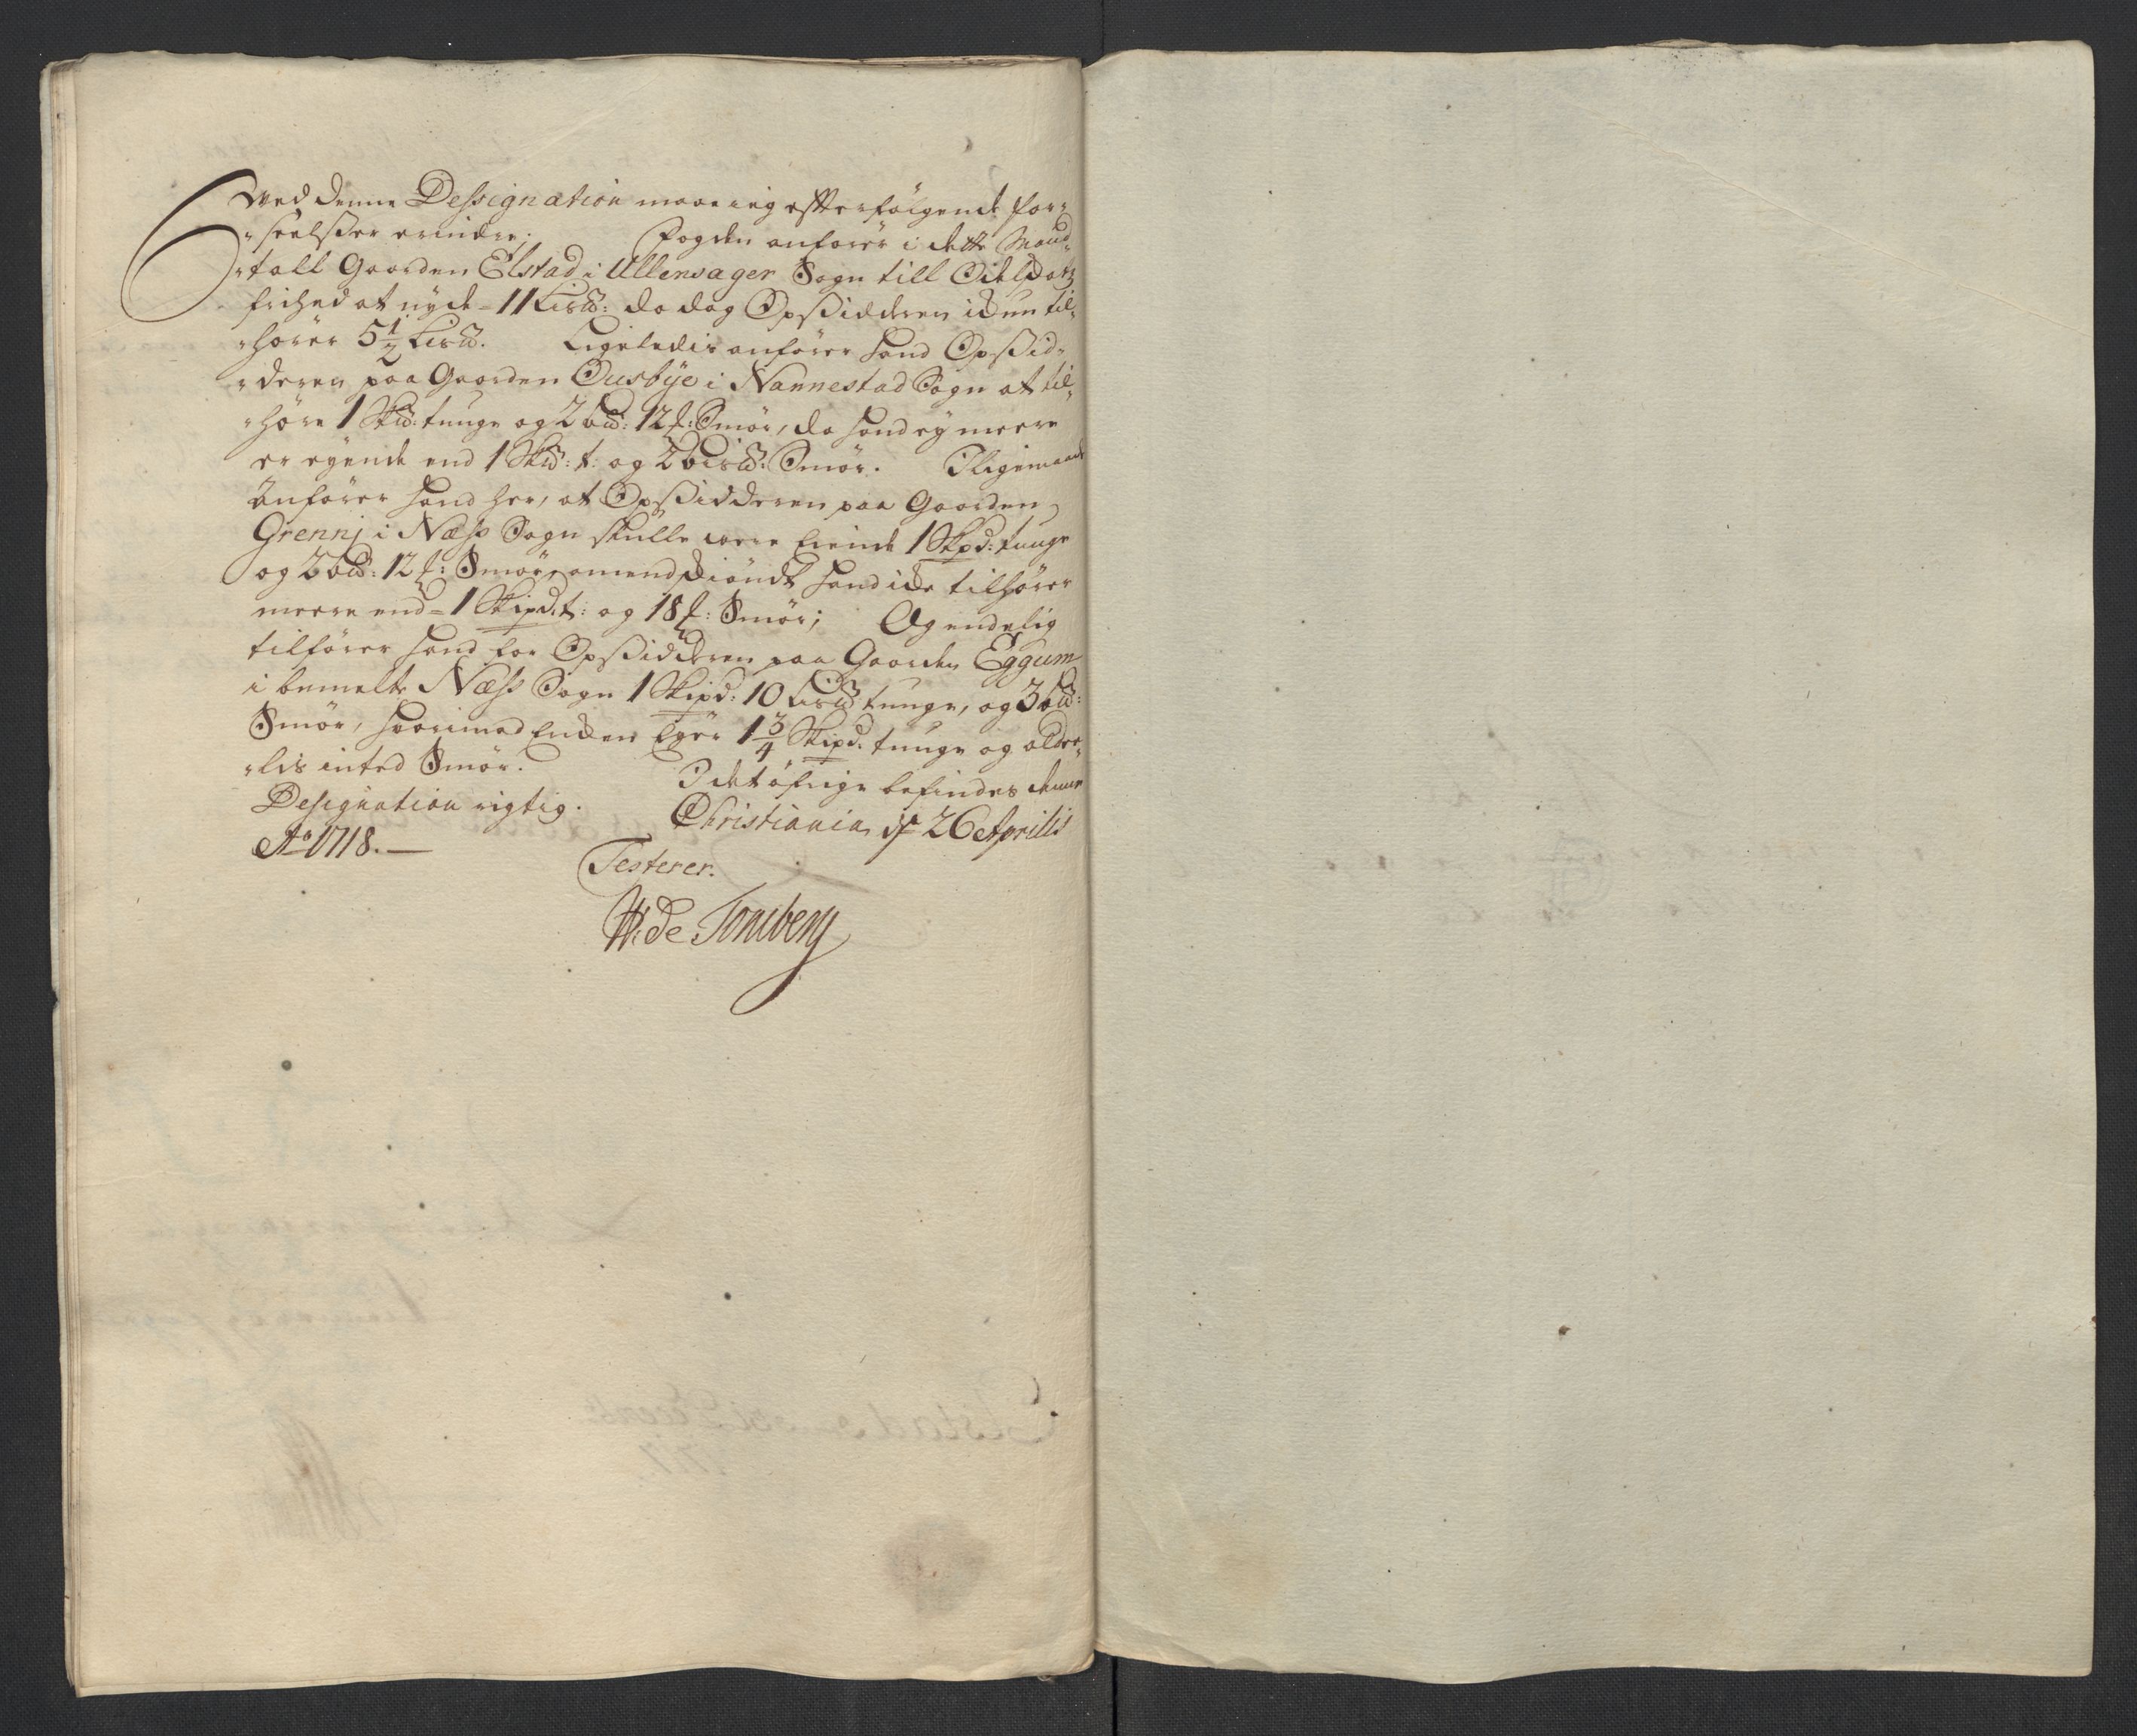 Ved denne Dessignation maae ieg effterfølgende for-
-seelsser erindre; Fogden anfører i dette Mand-
-tall Gaarden Elstad i Ullensager Sogn till Odelskatz
frihed at nyde - 11 Lis℔: da dog Opsidderen ickun til-
-hører 5½ Lis℔. Ligeledis anfører hand Opsid-
-deren paa Gaarden Ousbye i Nannestad Sogn at til-
-høre 1 Sk℔: tunge og 2 b℔: 12 f: Smør, da hand ey meere
er eyende end 1 Sk℔: t: og 2 bis℔: Smør. Iligemaade
Anfører hand her, at Opsidderen paa Gaarden
Grennj i Næss Sogn skulle være Eiende 1 Skpd: tunge
og 2 b℔: 12 f: Smør, omendskiøndt hand icke tilhører
meere end - 1 Skipd: t: og 18 f: Smør; Og endelig
tilfører hand for Opsidderen paa Gaarden Eggum
i bemelte Næss Sogn 1 Skipd: 10 Lis℔ tunge, og 3 b℔:
Smør, hvorimod Enken Eyer 1¾ Skipd. tunge og aldee-
-lis inted Smør. I det øfrige befindes denne
Designation rigtig. Christiania, d. 26 Aprilis
Ao 1718. —
Testerer.
W: de Tonsberg